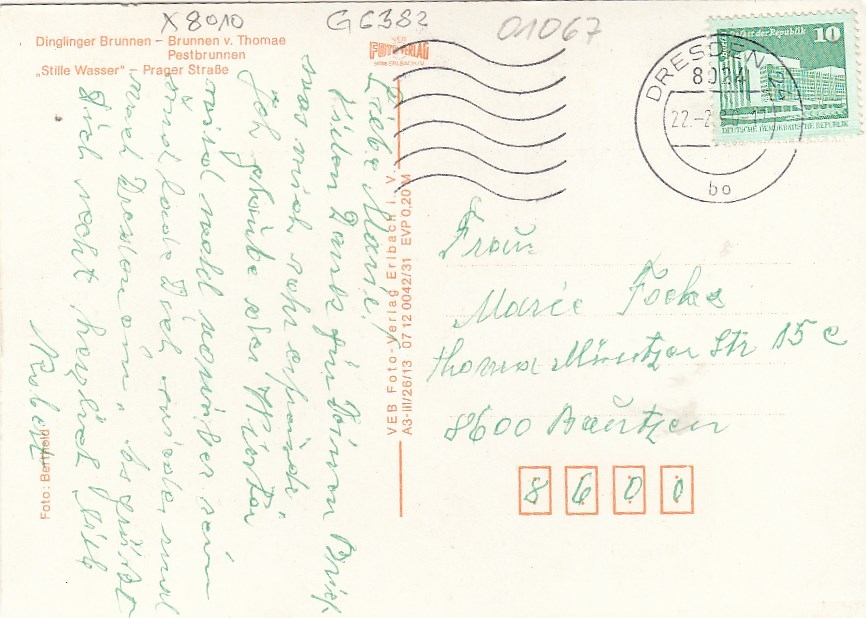 X 8010
G 6382
01067
Dinglinger Brunnen – Brunnen v. Thomae
Pestbrunnen
„Stille Wasser" – Prager Straße
VEB
FOTO-VERLAG
ERLBACH/V.
Liebe Marie!
Vielen Dank für Deinen Brief.
was mich sehr erfreute.
Ich glaube der Winter
wird wohl vorüber sein
und lade Dich wieder mal
nach Dresden ein. Es grüßt
Dich recht herzlich
Robert
Foto: Berthold
VEB Foto-Verlag Erlbach i. V.
A3-III/26/13 07 12 0042/31 EVP 0,20 M
Palast der Republik
10
DEUTSCHE DEMOKRATISCHE REPUBLIK
DRESDEN
8024
22.-2.
bo
Frau
Marie Focke
Thomas Müntzer Str 15 c
8600 Bautzen
8 6 0 0